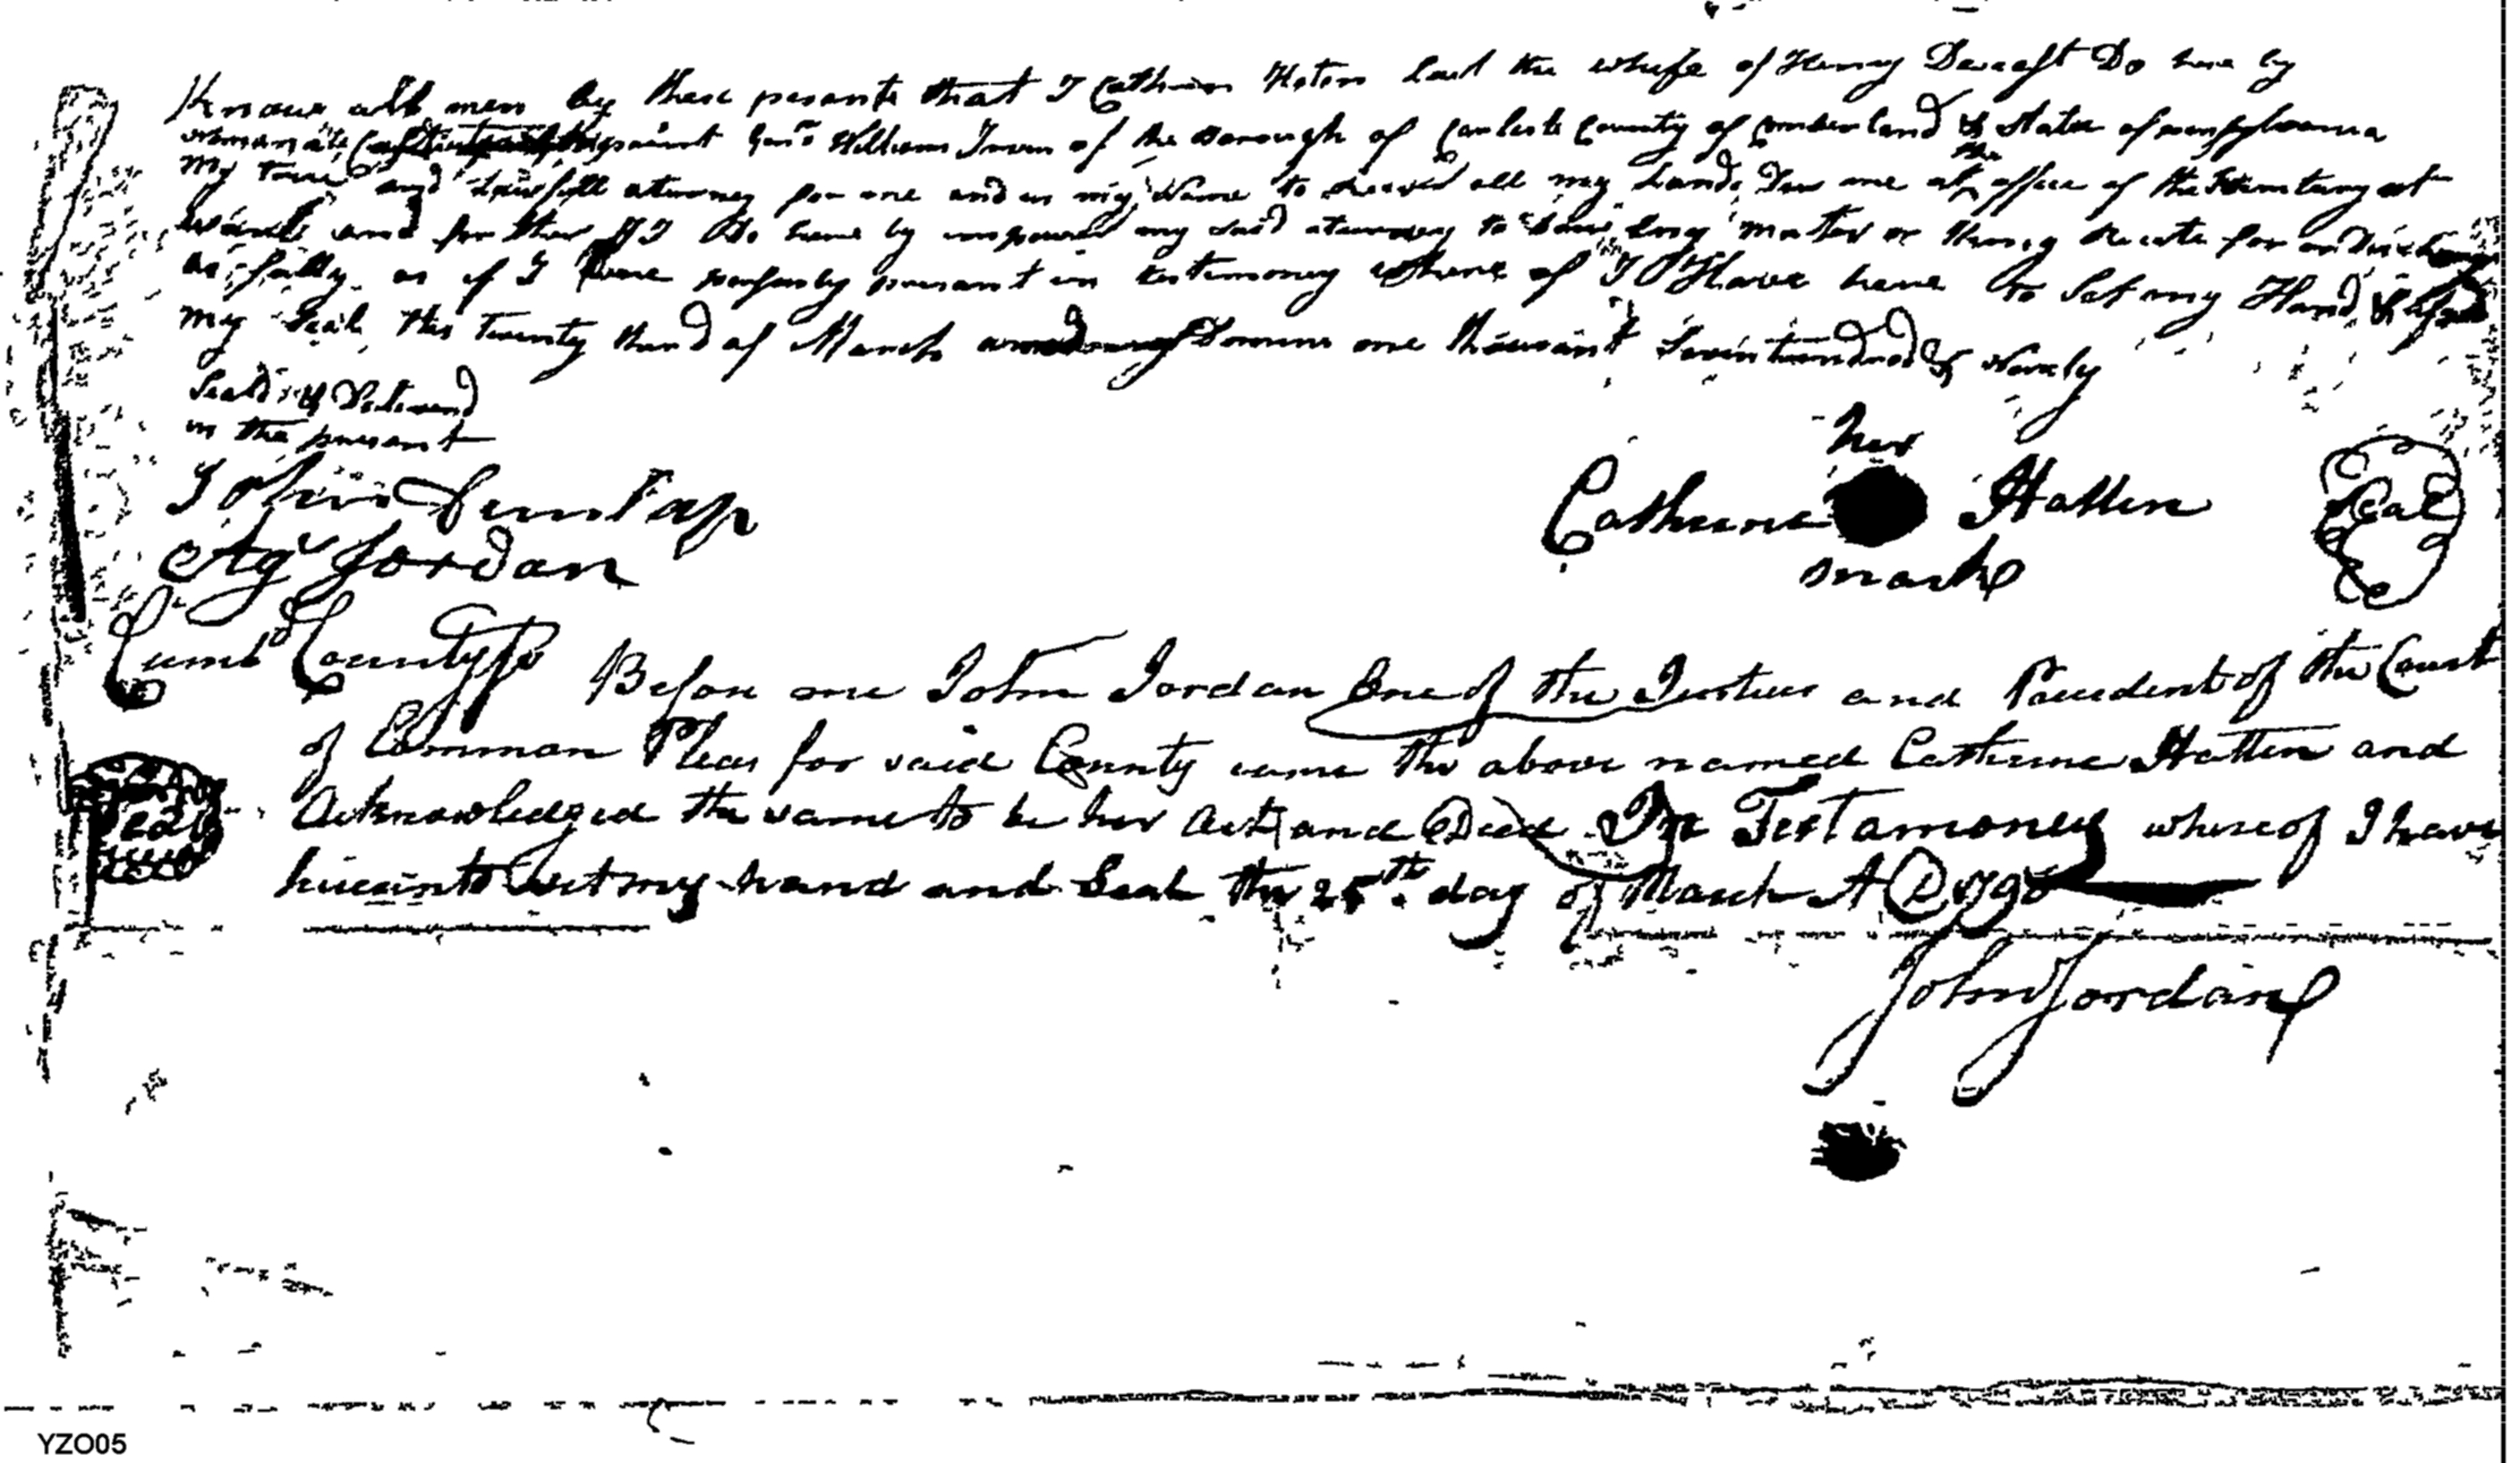 Know all men by these presents that I Catherin Hoten Last the whife of Henry Do here by
nominate appoint Genl William Irwin of the Borough of Carlisle County of Cumberland & State of
My true and Lawfull atorney for me and in my Name to all my Lands Due me at the office of the at
and for ther if I Do here by impower my said atorney to any mater or thing for
as fully as if I were present in testimoney where of I Have here to Set my Hand &
my Seal this Twenty third of March one thousand Seven hundred & Ninety
Seald & Delivered
in the presant
John Dunlap
Agn Jordan
her
Catherine Hatten Seal
mark
Cumbd County ss Before me John Jordan One of the Justices and President of the Court
of Common Pleas for said County came the above named Catherine Hatten and
Acknowledged the same to be her Act and Deed In Testamoney whereof I have
Seal
hereunto set my hand and Seal the 25th day of March A D 1790
John Jordan
YZO05